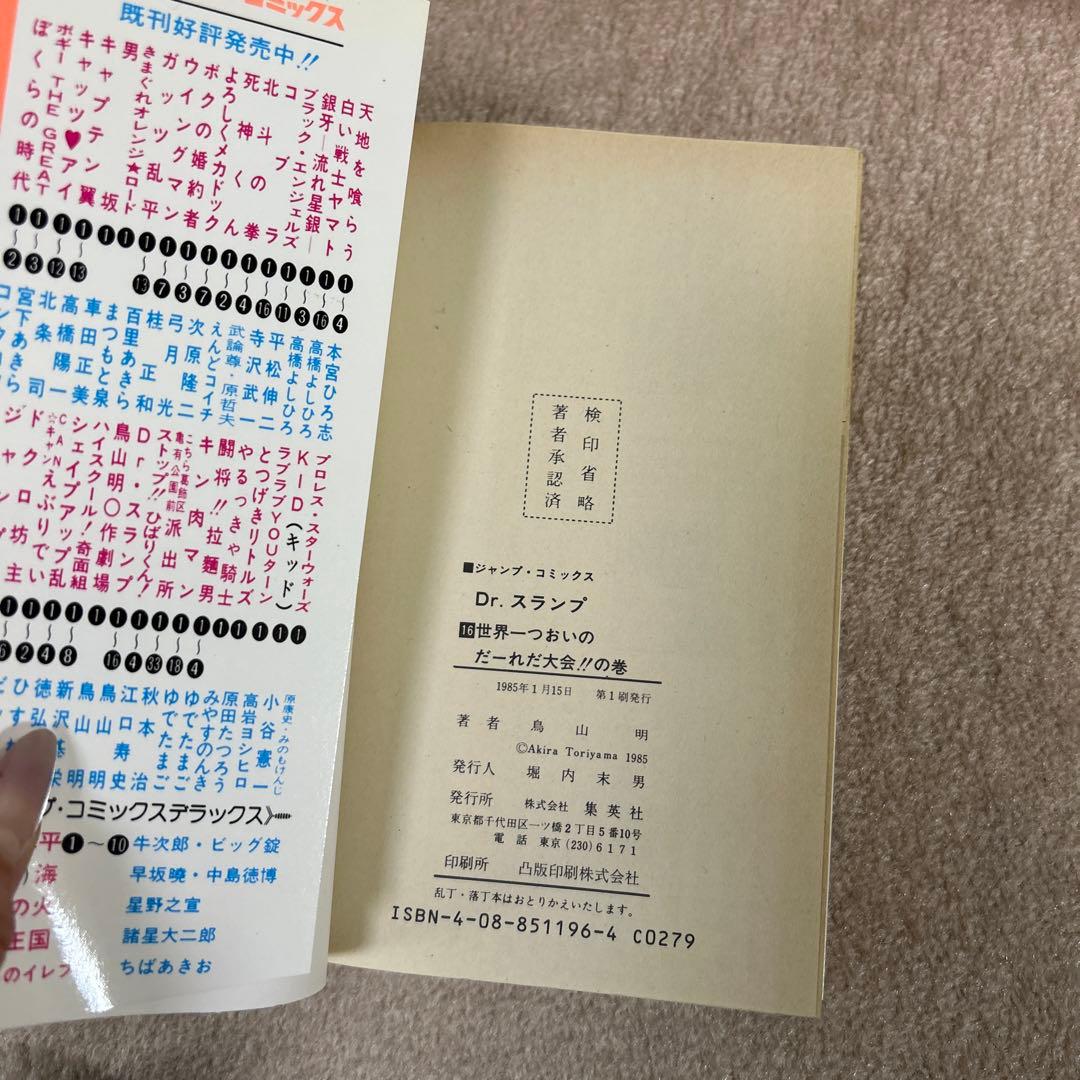 コミックス
既刊好評発売中!!
天地を喰らう
❶〜❹
本宮ひろ志
白い戦士ヤマト
❶〜⓰
高橋よしひろ
銀牙―流れ星銀―
❶〜❸
高橋よしひろ
ブラック・エンジェルズ
❶〜⓫
平松伸二
コブラ
❶〜⓰
寺沢武一
北斗の拳
❶〜❹
武論尊・原哲夫
死神くん
❶〜❷
えんどコイチ
よろしくメカドック
❶〜❼
次原隆二
ボクの婚約者
❶〜❸
弓月光
ウイングマン
❶〜❼
桂正和
ガッツ乱平
❶〜⓭
百里あきら
きまぐれオレンジ★ロード
❶
まつもと泉
男坂
❶
車田正美
キャプテン翼
❶〜⓭
高橋陽一
キャッツ♥アイ
❶〜⓬
北条司
ボギー THE GREAT
❶〜❸
宮下あきら
ぼくらの時代
❶〜❷
プロレス・スターウォーズ
❶
原康史・みのもけんじ
KID(キッド)
❶
小谷憲一
ラブラブYOUターン
❶
高岩ヨシヒロ
とつげきリトルズ
❶
やるっきゃ騎士
❶
みやすのんき
闘将!!拉麺男
❶〜❹
ゆでたまご
キン肉マン
❶〜⓲
ゆでたまご
こちら葛飾区亀有公園前派出所
❶〜㉝
秋本治
ストップ!!ひばりくん!
❶〜❹
江口寿史
Dr.スランプ
❶〜⓰
鳥山明
鳥山明〇作劇場
❶
鳥山明
ハイスクール!奇面組
❶〜❽
新沢基栄
シェイプアップ乱
❶〜❹
徳弘
コミックスデラックス》
平❶〜❿ 牛次郎・ビッグ錠
海 早坂暁・中島徳博
の火 星野之宣
王国 諸星大二郎
のイレブ ちばあきお
検印省略
著者承認済
■ジャンプ・コミックス
Dr. スランプ
16世界一つおいの
だーれだ大会!!の巻
1985年1月15日 第1刷発行
著者 鳥山明
©Akira Toriyama 1985
発行人 堀内末男
発行所 株式会社 集英社
東京都千代田区一ツ橋2丁目5番10号
電話 東京(230)6171
印刷所 凸版印刷株式会社
乱丁・落丁本はおとりかえいたします。
ISBN-4-08-851196-4 C0279